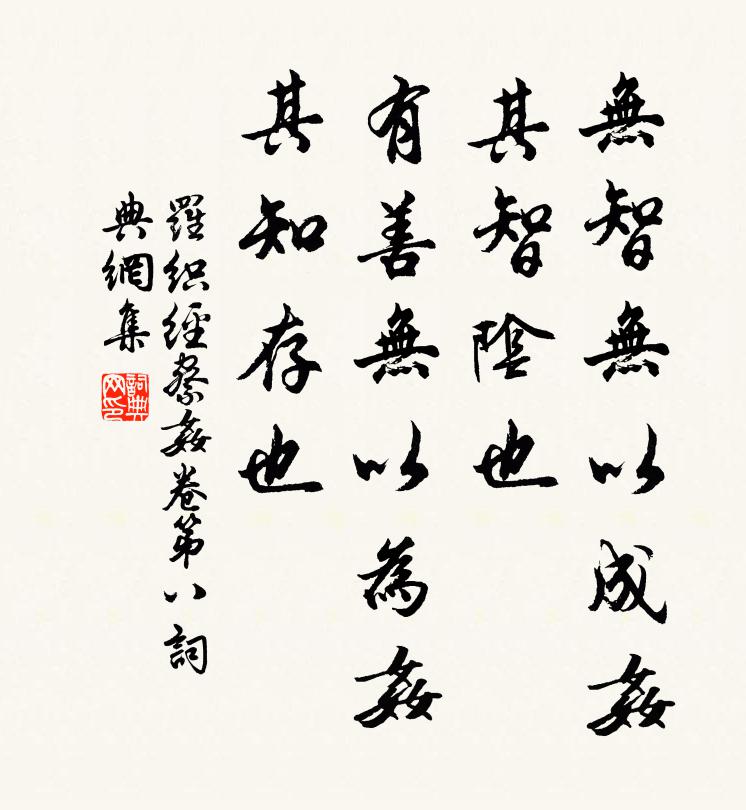 無智無以成姦
其智陰也
有善無以為姦
其知存也
羅織經察姦卷第八詞
典網集
詞典
网印